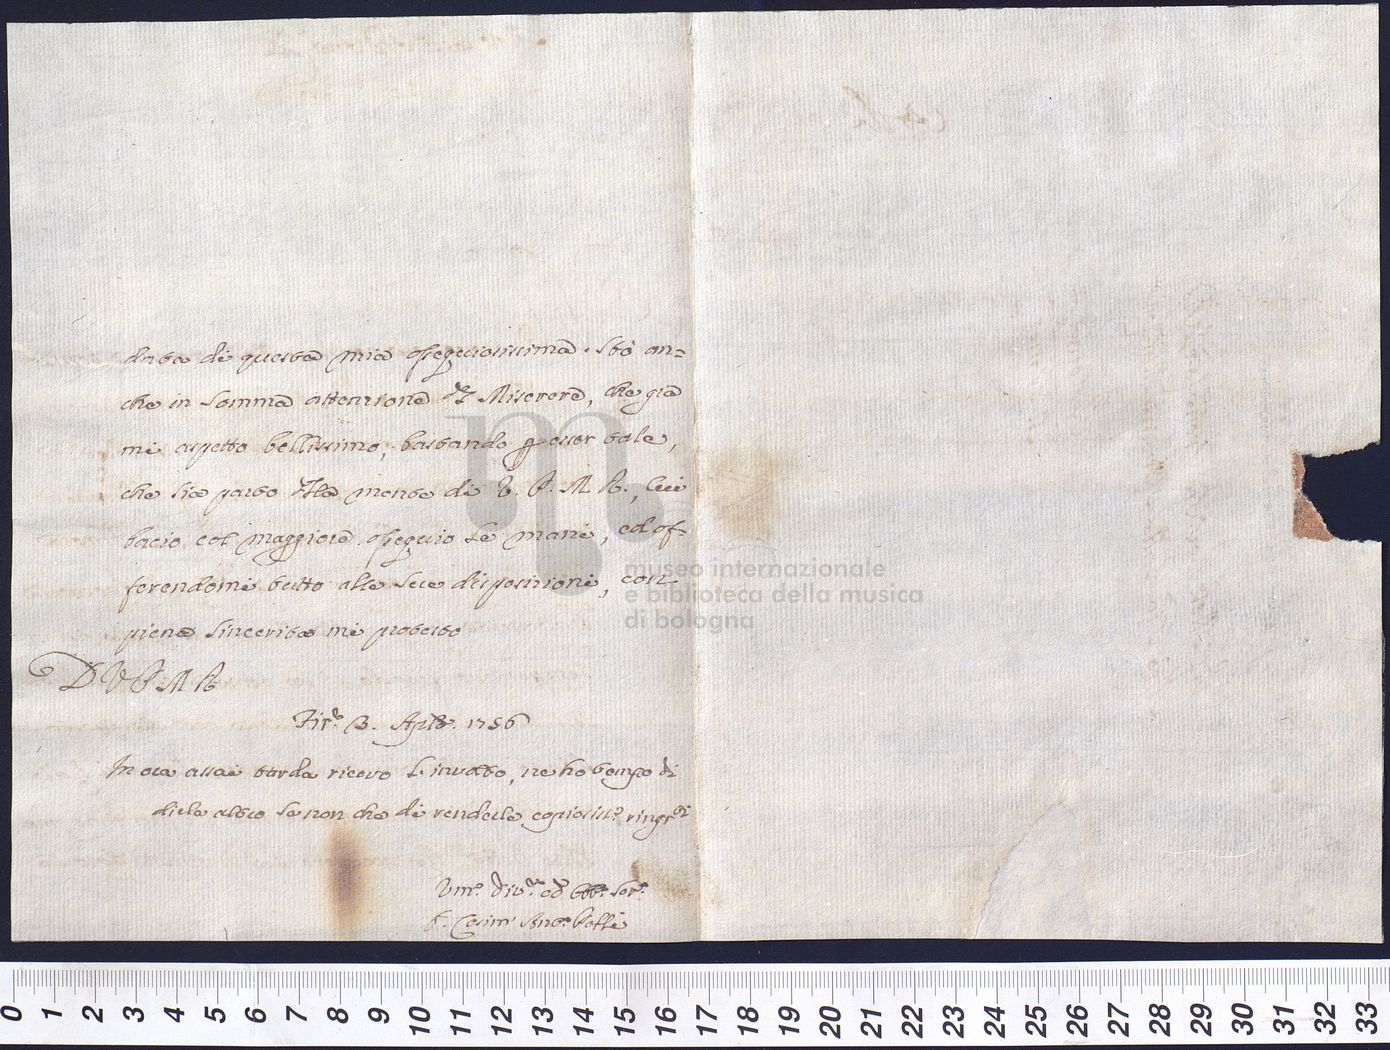 data di questa mia ossequiosissima. Stò an=
che in somma attenzione del Miserere, che già
mi aspetto bellissimo, bastando per esser tale,
che sia parto della mente di V. P. M. R., Cui
bacio col maggiore ossequio le mani, ed of-
ferendomi tutto alle sue disposizioni, con
piena sincerità mi protesto
D V P M R
Fir.e 3. Aple. 1756
In ora assai tarda ricevo l'involto, ne ho tempo di
dirle altro se non che di renderle copiosiss.i ringr.ti
Um.o Div.mo ed Obb.o Ser.e
F. Cosim. Ant.o Pelli
museo internazionale
e biblioteca della musica
di bologna
0 1 2 3 4 5 6 7 8 9 10 11 12 13 14 15 16 17 18 19 20 21 22 23 24 25 26 27 28 29 30 31 32 33